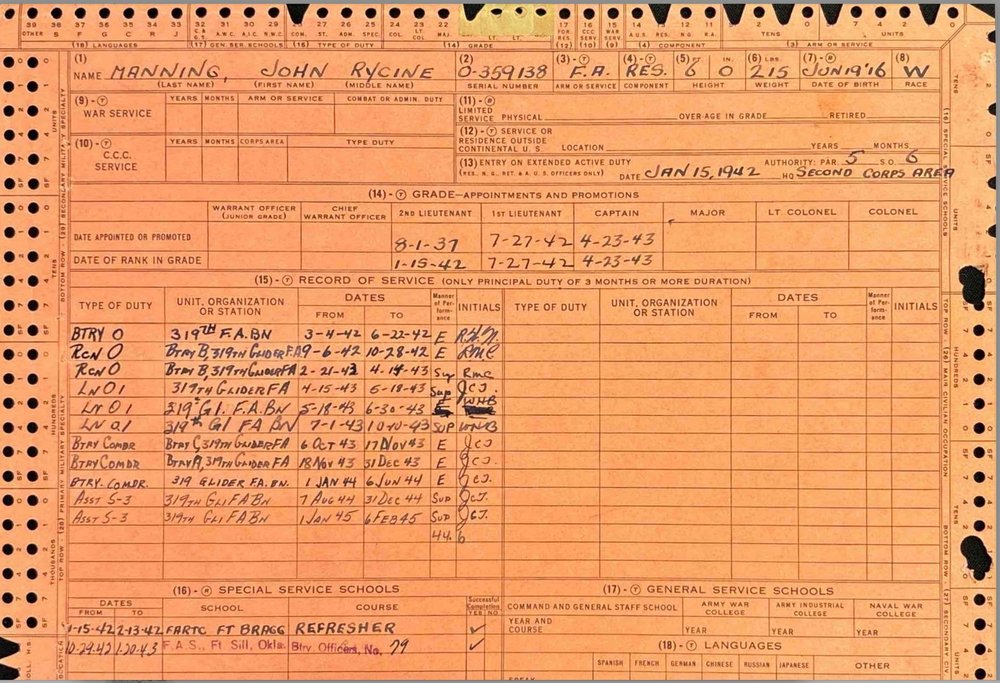 39 38 37 36 35 34 33 32 31 30 29 28 27 26 25 24 23 22 17 16 15 14 13 12 11 10 9 8 7 6 5 4 3 2 1
OTHER S F G C R J C.& G.S. A.W.C. A.I.C. N.W.C. COM. ST. ADM. SPEC. LT. COL. MAJ. LT. LT. FOR. RES. CCC SERV WAR SERV A.U.S. RES. N.G. R.A. TENS UNITS
(18) LANGUAGES (17) GEN. SER. SCHOOLS (16) TYPE OF DUTY (14) GRADE (12) (10) (9) (4) COMPONENT (3) ARM OR SERVICE
(1) NAME MANNING, JOHN RYCINE (2) O-359138 (3)-T F.A. (4)-T RES. (5) 6 IN. 0 (6) LBS. 215 (7)-R JUN 19 '16 (8) W
(LAST NAME) (FIRST NAME) (MIDDLE NAME) SERIAL NUMBER ARM OR SERVICE COMPONENT HEIGHT WEIGHT DATE OF BIRTH RACE
(9)-T WAR SERVICE YEARS MONTHS ARM OR SERVICE COMBAT OR ADMIN. DUTY
(11)-R LIMITED SERVICE PHYSICAL OVER-AGE IN GRADE RETIRED
(10)-T C.C.C. SERVICE YEARS MONTHS CORPS AREA TYPE DUTY
(12)-T SERVICE OR RESIDENCE OUTSIDE CONTINENTAL U.S. LOCATION YEARS MONTHS
(13) ENTRY ON EXTENDED ACTIVE DUTY AUTHORITY: PAR. 5 S.O. 6
(RES., N.G., RET. & A.U.S. OFFICERS ONLY) DATE JAN 15, 1942 HQ SECOND CORPS AREA
(14)-T GRADE—APPOINTMENTS AND PROMOTIONS
WARRANT OFFICER (JUNIOR GRADE) CHIEF WARRANT OFFICER 2ND LIEUTENANT 1ST LIEUTENANT CAPTAIN MAJOR LT. COLONEL COLONEL
DATE APPOINTED OR PROMOTED 8-1-37 7-27-42 4-23-43
DATE OF RANK IN GRADE 1-15-42 7-27-42 4-23-43
(15)-T RECORD OF SERVICE (ONLY PRINCIPAL DUTY OF 3 MONTHS OR MORE DURATION)
TYPE OF DUTY UNIT, ORGANIZATION OR STATION DATES FROM TO Manner of Performance INITIALS TYPE OF DUTY UNIT, ORGANIZATION OR STATION DATES FROM TO Manner of Performance INITIALS
BTRY O 319TH F.A.BN 3-4-42 6-22-42 E
RCN O BTRY B, 319TH GLIDER F.A 9-6-42 10-28-42 E RMC
RCN O BTRY B, 319TH GLIDER FA 2-21-43 4-14-43 Sup RMC
LN O1 319TH GLIDER FA 4-15-43 5-18-43 Sup JCJ
LN O1 319th Gl. F.A.BN 5-18-43 6-30-43 E WNB
LN O1 319th Gl FA BN 7-1-43 10-10-43 SUP WNB
BTRY COMDR BTRY C, 319TH GLIDER FA 6 OCT 43 17 NOV 43 E JCJ
BTRY COMDR BTRY A, 319TH GLIDER FA 18 NOV 43 31 DEC 43 E JCJ.
BTRY. COMDR. 319 GLIDER FA. BN. 1 JAN 44 6 JUN 44 E JCJ.
ASST S-3 319TH GLI FA BN 7 AUG 44 31 DEC 44 SUP JCJ.
ASST S-3 319TH GLI FA BN 1 JAN 45 6 FEB 45 SUP JCJ.
44.6
(16)-R SPECIAL SERVICE SCHOOLS (17)-T GENERAL SERVICE SCHOOLS
DATES FROM TO SCHOOL COURSE Successful Completion YES NO COMMAND AND GENERAL STAFF SCHOOL ARMY WAR COLLEGE ARMY INDUSTRIAL COLLEGE NAVAL WAR COLLEGE
YEAR AND COURSE YEAR YEAR YEAR
1-15-42 2-13-42 FARTC FT BRAGG REFRESHER ✓
10-29-42 1-20-43 F.A.S., Ft Sill, Okla. Btry Officers, No. 79 ✓
(18)-T LANGUAGES
SPANISH FRENCH GERMAN CHINESE RUSSIAN JAPANESE OTHER
SPEAK